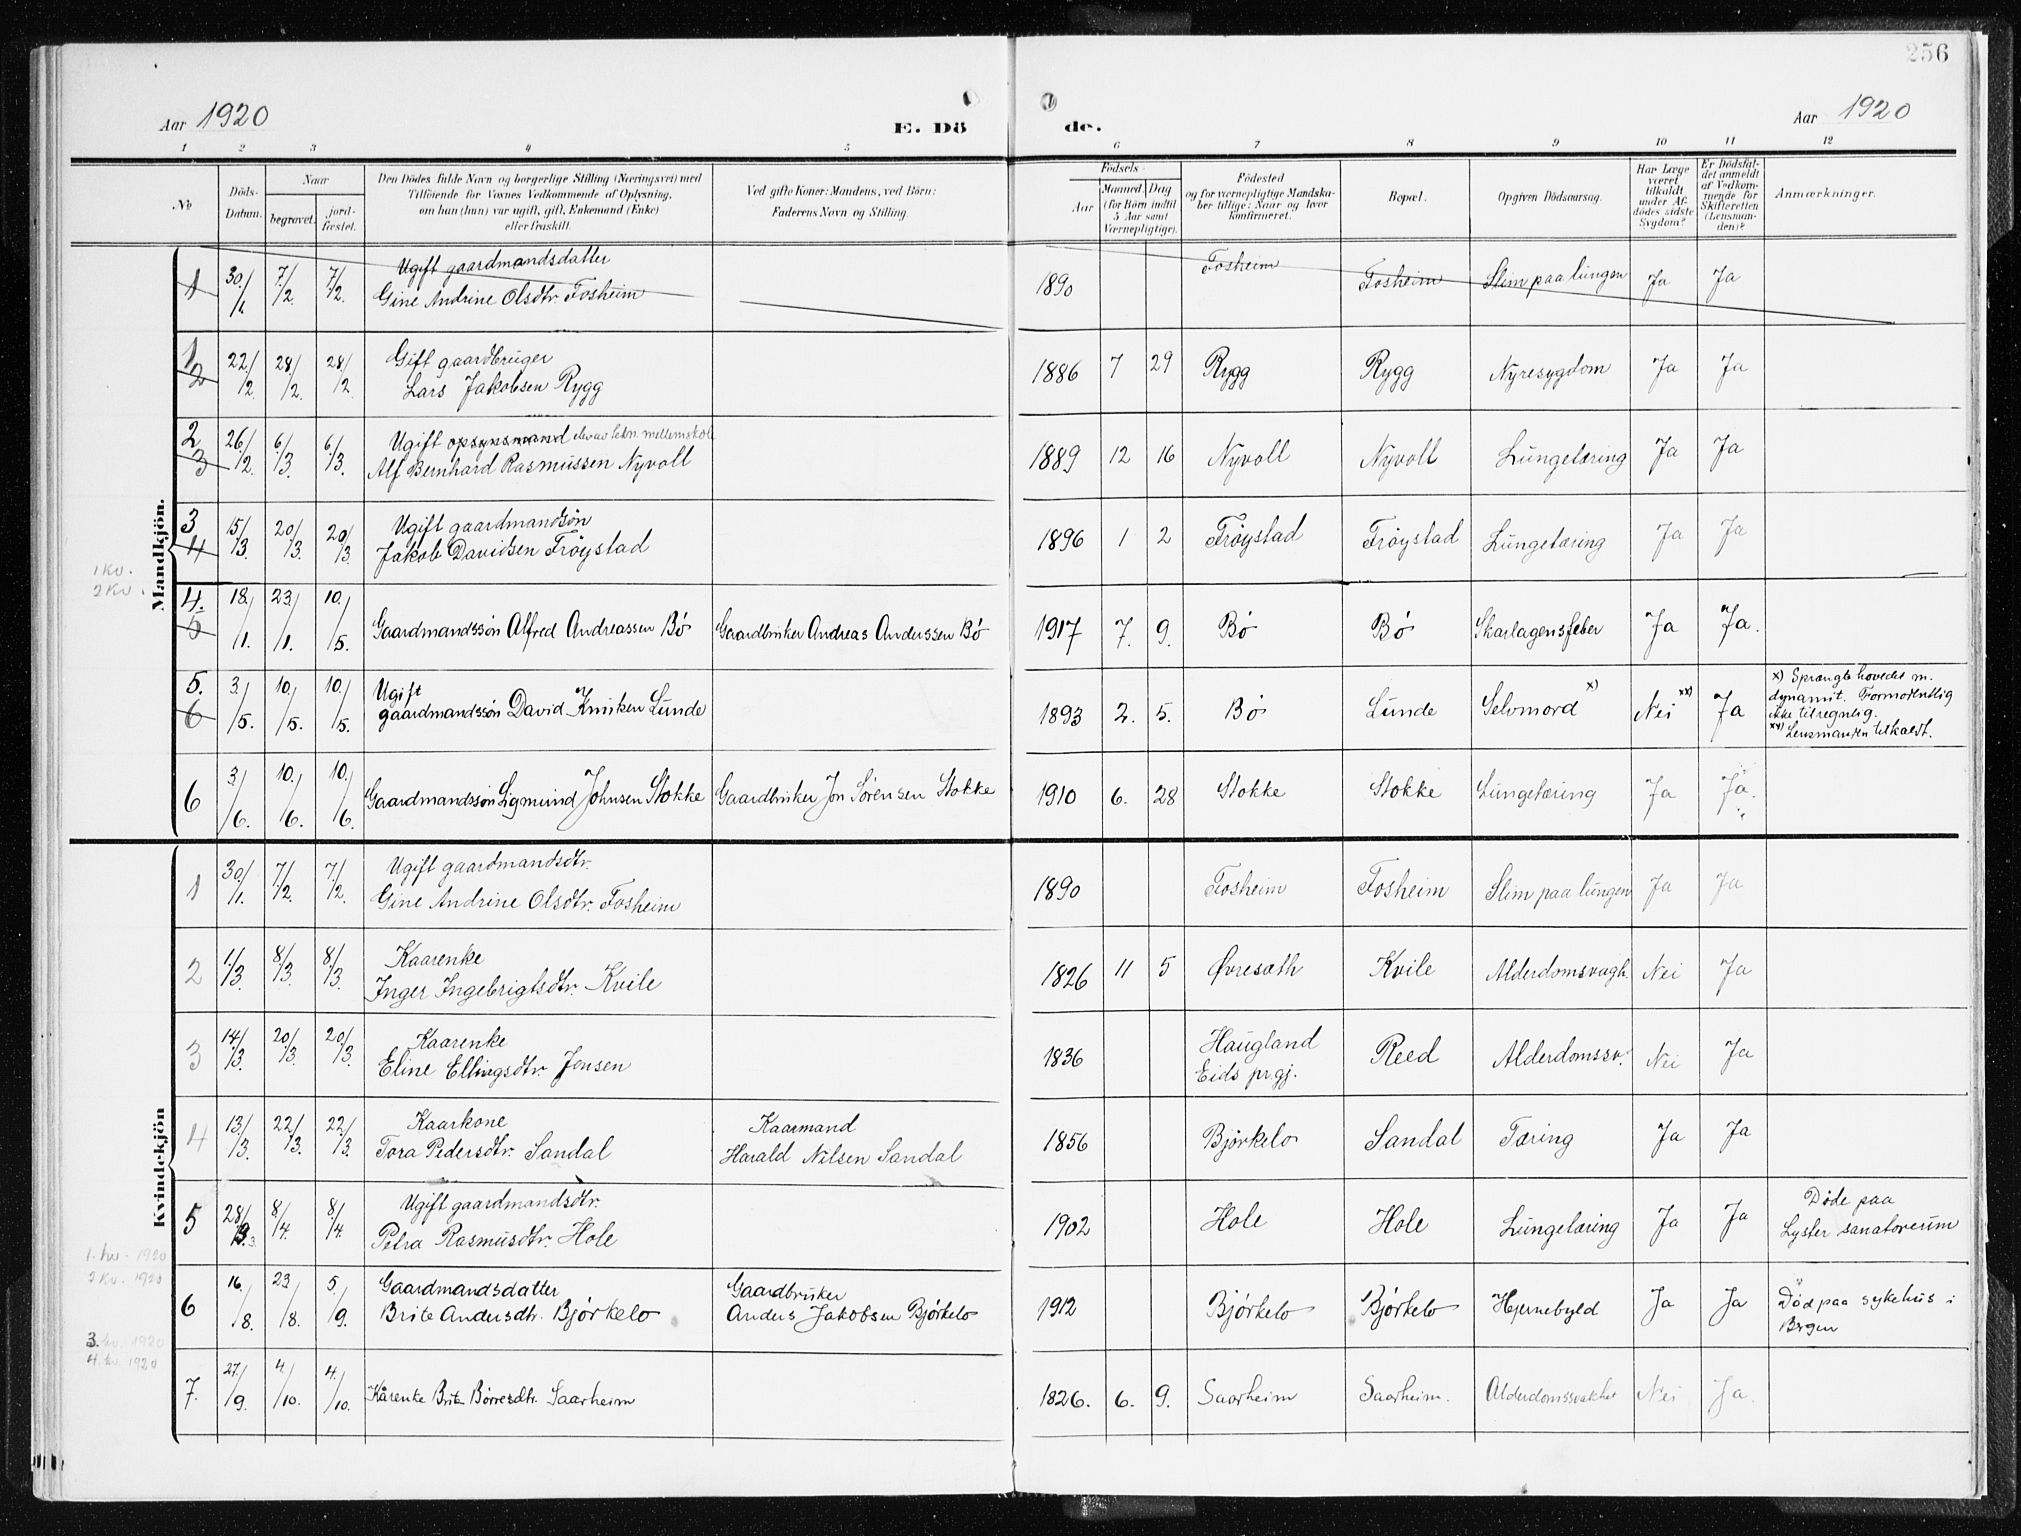 256
Aar 1920
E. Dö de.
Aar 1920
1 2 3 4 5 6 7 8 9 10 11 12
No
Döds-Datum.
Naar
begravet.
jord-fæstet.
Den Dödes fulde Navn og borgerlige Stilling (Næringsvei) med
Tilföiende for Voxnes Vedkommende af Oplysning,
om han (hun) var ugift, gift, Enkemand (Enke)
eller fraskilt.
Ved gifte Koner: Mandens, ved Börn:
Faderens Navn og Stilling.
Födsels-
Aar
Maaned. Dag
(for Börn indtil
5 Aar samt
Værnepligtige).
Födested
og for værnepligtige Mandska-
ber tillige: Naar og hvor
konfirmeret.
Bopæl.
Opgiven Dödsaarsag.
Har Læge
været
tilkaldt
under Af-
dödes sidste
Sygdom?
Er Dödsfal-
det anmeldt
af Vedkom-
mende for
Skifteretten
(Lensman-
den)?
Anmærkninger.
Mandkjön.
1 kv.
2 kv.
1 30/1 7/2 7/2. Ugift gaardmandsdatter
Gine Andrine Olsdtr. Fosheim 1890 Fosheim Fosheim Slim paa lungen Ja Ja
1 2 22/2. 28/2. 28/2. Gift gaardbruger
Lars Jakobsen Rygg 1886 7 29 Rygg Rygg Nyresygdom Ja Ja
2 3 26/2. 6/3. 6/3. Ugift opsynsmand elev av lekn. mellemskole
Alf Bernhard Rasmussen Nyvoll 1889 12 16 Nyvoll Nyvoll Lungetæring Ja Ja
3 4 15/3. 20/3. 20/3. Ugift gaardmandsøn
Jakob Davidsen Frøystad 1896 1 2 Frøystad Frøystad Lungetæring Ja Ja
4. 5 18./1. 23./1. 10./5. Gaardmandssøn Alfred Andreassen Bø Gaardbruker Andreas Anderssen Bø 1917 7. 9. Bø Bø Skarlagensfeber Ja Ja.
5. 6 3./5. 10./5. 10./5. Ugift
gaardmandssøn David Lunde 1893 2. 5. Bø Lunde Selvmord x) Nei xx) Ja x) Sprængte hovedet m.
dynamit. Formodentlig
ikke tilregnelig.
xx) Lensmanden tilkaldt.
6 3./6. 10./6. 10./6. Gaardmandssøn Sigmund Johnsen Stokke Gaardbruker Jon Sørensen Stokke 1910 6. 28 Stokke Stokke Lungetæring Ja Ja.
Kvindekjön
1. kv. 1920
2 kv. 1920
3. kv. 1920
4. kv. 1920
1 30/1. 7/2. 7/2. Ugift gaardmandsdtr.
Gine Andrine Olsdtr. Fosheim 1890 Fosheim Fosheim Slim paa lungen Ja Ja
2 1/3. 8/3. 8/3. Kaarenke
Inger Ingebrigtsdtr. Kvile 1826 11 5 Øvreseth Kvile Alderdomsvagh. Nei Ja
3 14/3. 20/3. 20/3. Kaarenke
Eline Ellingsdtr. Jonsen 1836 Haugland
Eids prgj. Reed Alderdomssv. Nei Ja
4 13/3. 22/3. 22/3. Kaarkone
Tora Pedersdtr. Sandal Kaarmand
Harald Nilsen Sandal 1856 Bjørkelo Sandal Tæring Ja Ja
5 28/3. 8/4. 8/4. Ugift gaardmandsdtr.
Petra Rasmusdtr. Hole 1902 Hole Hole Lungetæring Ja Ja Døde paa
Lyster sanatorium
6 16./8. 23/8. 5/9. Gaardmandsdatter
Brite Andersdtr. Bjørkelo Gaardbruker
Anders Jakobsen Bjørkelo 1912 Bjørkelo Bjørkelo Hjernebyld Ja Ja Død paa sykehus i
Bergen
7. 27/9. 4/10. 4./10. Kårenke Brite Børresdtr. Saarheim 1826. 6. 9. Saarheim Saarheim. Alderdomssvakhet Nei Ja.